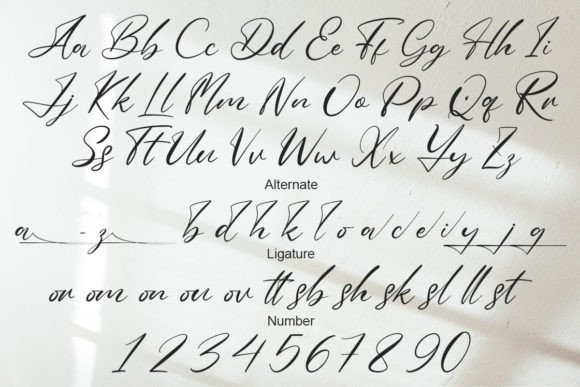 Aa Bb Cc Dd Ee Ff Gg Hh Ii
Jj Kk Ll Mm Nn Oo Pp Qq Rr
Ss Tt Uu Vv Ww Xx Yy Zz
Alternate
a - z b d h k l o a c e i y j g
Ligature
or om on ou ov tt sb sh sk sl ll st
Number
1 2 3 4 5 6 7 8 9 0